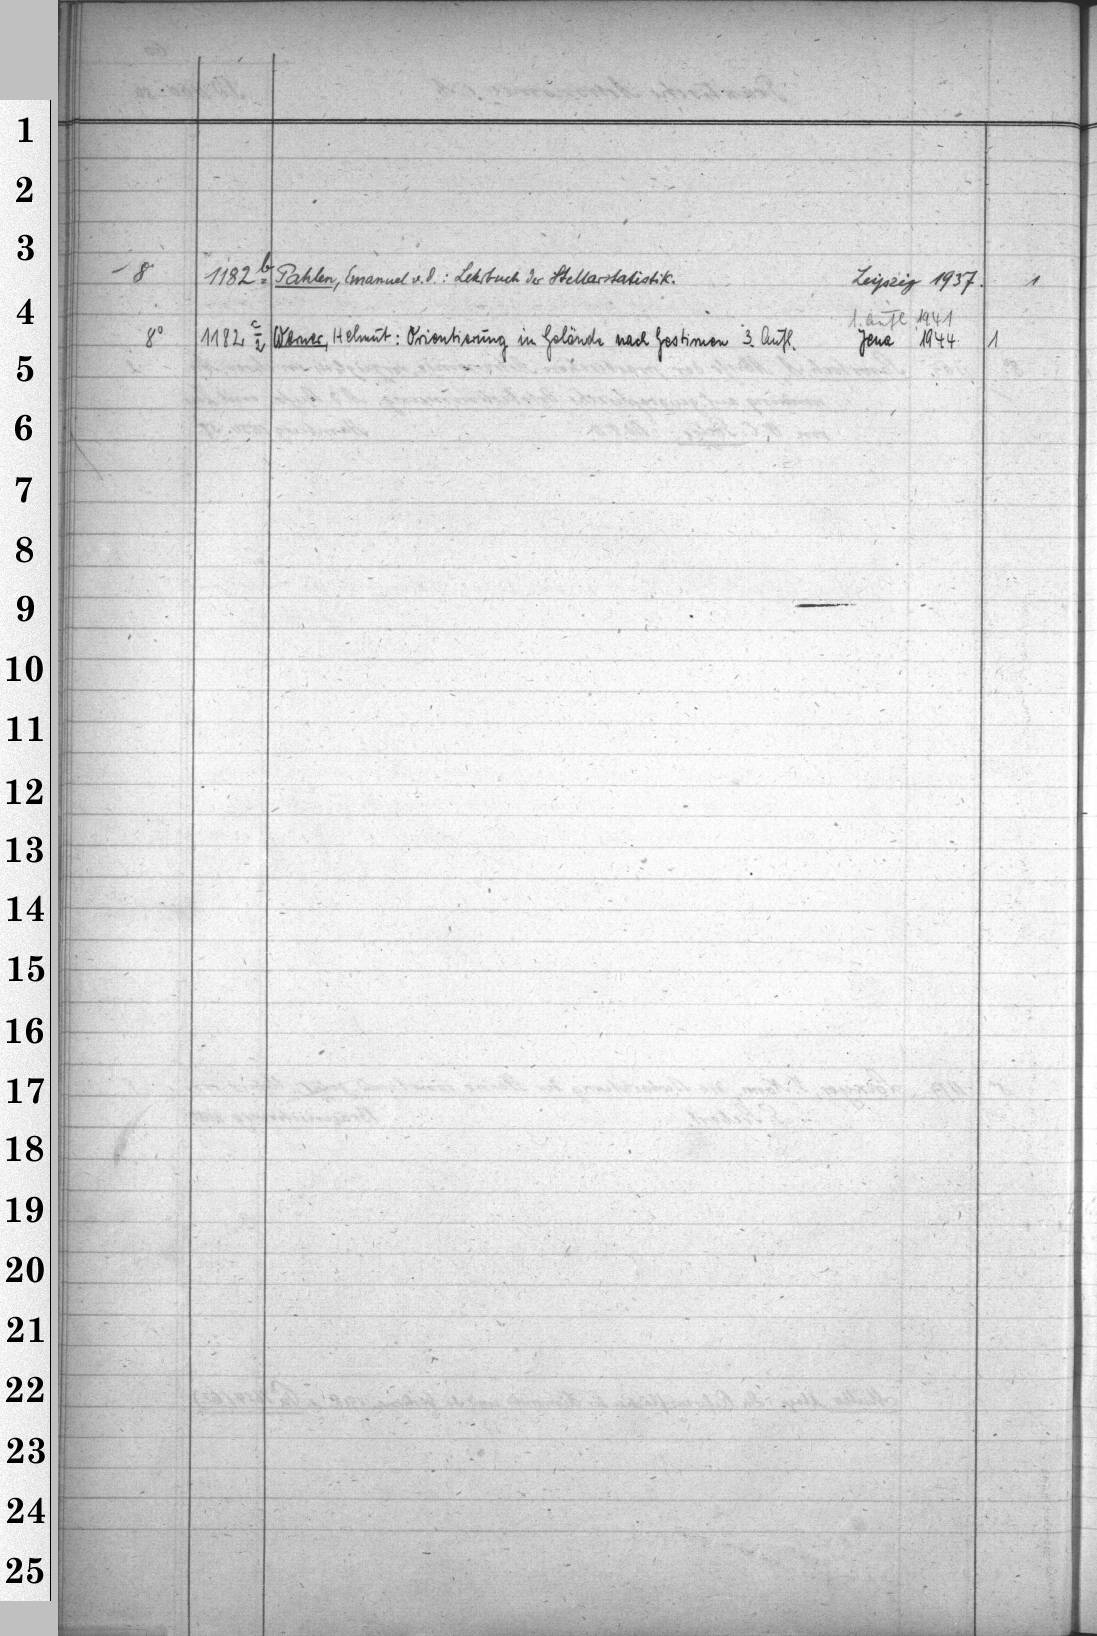 1
2
3
8° 1182 b Pahlen, Emanuel v. d.: Lehrbuch der Stellarstatistik. Leipzig 1937. 1
4
1. Aufl. 1941
8° 1182 c Werner, Helmut: Orientierung im Gelände nach Gestirnen 3. Aufl. Jena 1944 1
5
6
7
8
9
10
11
12
13
14
15
16
17
18
19
20
21
22
23
24
25